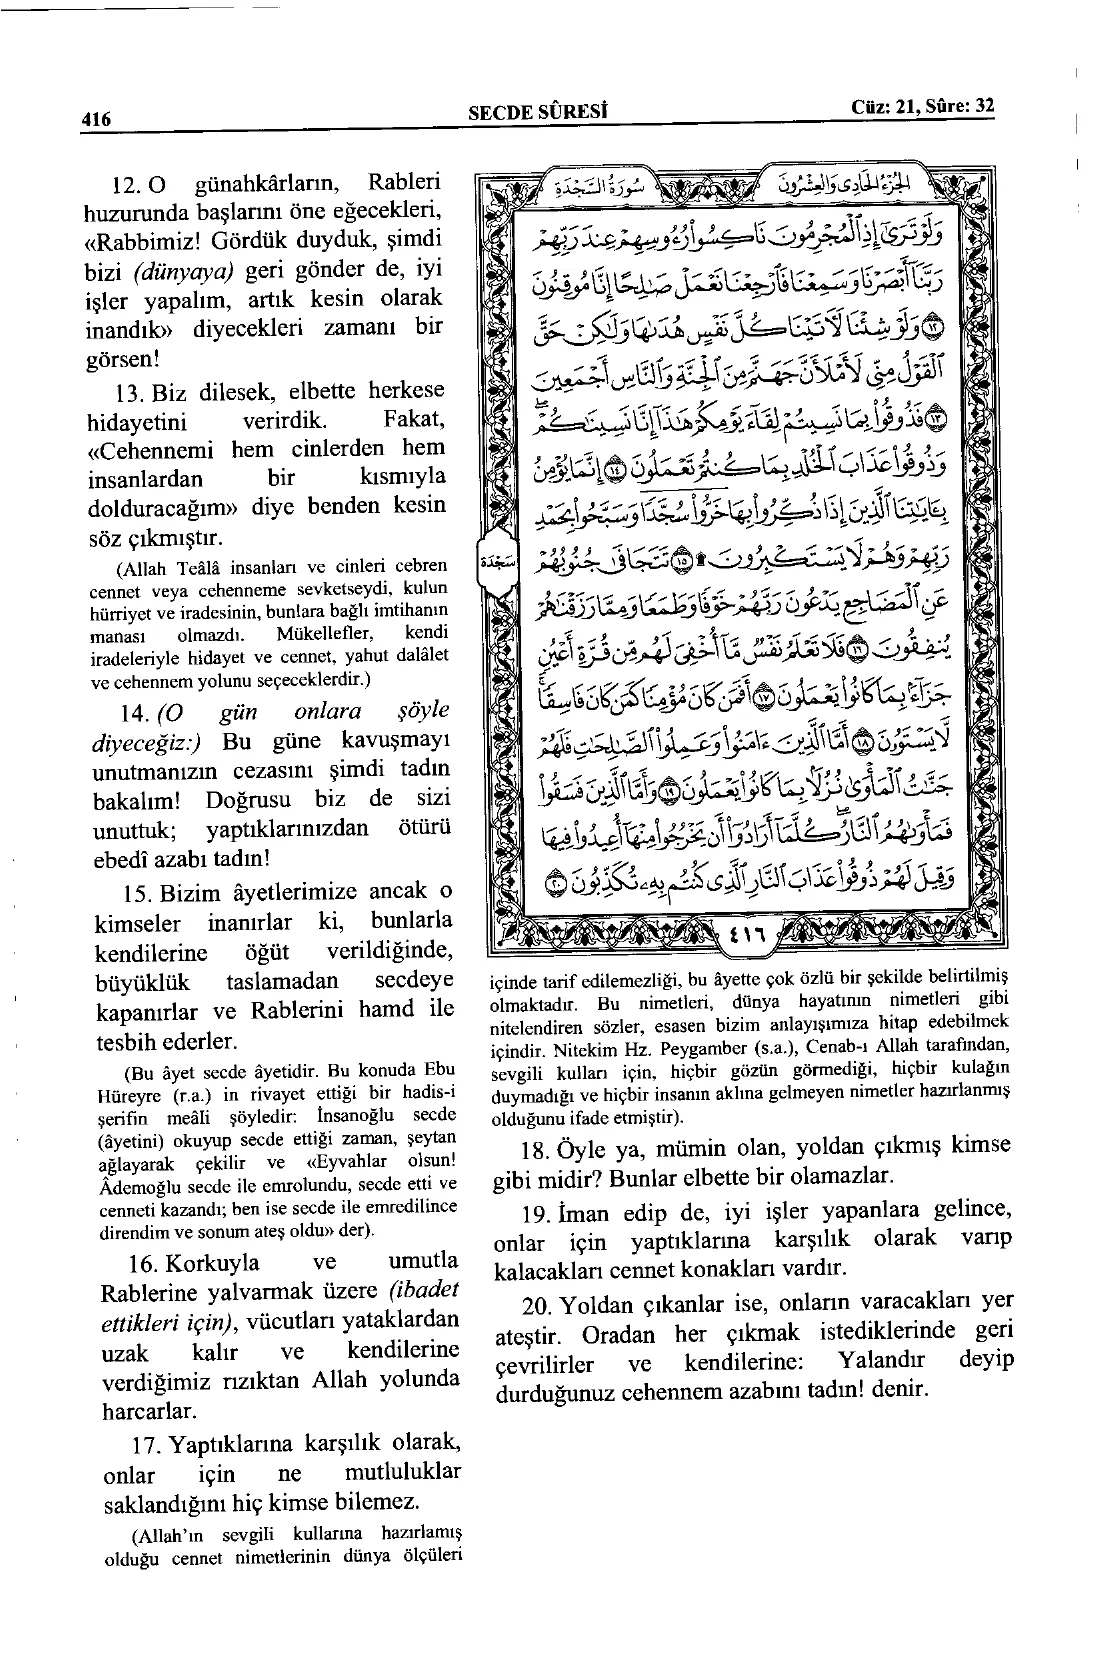 416
SECDE SÛRESİ
Cüz: 21, Sûre: 32
12. O günahkârların, Rableri
huzurunda başlarını öne eğecekleri,
«Rabbimiz! Gördük duyduk, şimdi
bizi (dünyaya) geri gönder de, iyi
işler yapalım, artık kesin olarak
inandık» diyecekleri zamanı bir
görsen!
13. Biz dilesek, elbette herkese
hidayetini verirdik. Fakat,
«Cehennemi hem cinlerden hem
insanlardan bir kısmıyla
dolduracağım» diye benden kesin
söz çıkmıştır.
(Allah Teâlâ insanları ve cinleri cebren
cennet veya cehenneme sevketseydi, kulun
hürriyet ve iradesinin, bunlara bağlı imtihanın
manası olmazdı. Mükellefler, kendi
iradeleriyle hidayet ve cennet, yahut dalâlet
ve cehennem yolunu seçeceklerdir.)
14. (O gün onlara şöyle
diyeceğiz:) Bu güne kavuşmayı
unutmanızın cezasını şimdi tadın
bakalım! Doğrusu biz de sizi
unuttuk; yaptıklarınızdan ötürü
ebedî azabı tadın!
15. Bizim âyetlerimize ancak o
kimseler inanırlar ki, bunlarla
kendilerine öğüt verildiğinde,
büyüklük taslamadan secdeye
kapanırlar ve Rablerini hamd ile
tesbih ederler.
(Bu âyet secde âyetidir. Bu konuda Ebu
Hüreyre (r.a.) in rivayet ettiği bir hadis-i
şerifin meâli şöyledir: İnsanoğlu secde
(âyetini) okuyup secde ettiği zaman, şeytan
ağlayarak çekilir ve «Eyvahlar olsun!
Âdemoğlu secde ile emrolundu, secde etti ve
cenneti kazandı; ben ise secde ile emredilince
direndim ve sonum ateş oldu» der).
16. Korkuyla ve umutla
Rablerine yalvarmak üzere (ibadet
ettikleri için), vücutları yataklardan
uzak kalır ve kendilerine
verdiğimiz rızıktan Allah yolunda
harcarlar.
17. Yaptıklarına karşılık olarak,
onlar için ne mutluluklar
saklandığını hiç kimse bilemez.
(Allah’ın sevgili kullarına hazırlamış
olduğu cennet nimetlerinin dünya ölçüleri
سُورَةُ السَّجْدَةِ
الجُزْءُ الحَادِي وَالعِشْرُونَ
وَلَوْ تَرَىٰٓ إِذِ ٱلْمُجْرِمُونَ نَاكِسُوا۟ رُءُوسِهِمْ عِندَ رَبِّهِمْ
رَبَّنَآ أَبْصَرْنَا وَسَمِعْنَا فَٱرْجِعْنَا نَعْمَلْ صَـٰلِحًا إِنَّا مُوقِنُونَ
﴿١٢﴾ وَلَوْ شِئْنَا لَـَٔاتَيْنَا كُلَّ نَفْسٍ هُدَىٰهَا وَلَـٰكِنْ حَقَّ
ٱلْقَوْلُ مِنِّى لَأَمْلَأَنَّ جَهَنَّمَ مِنَ ٱلْجِنَّةِ وَٱلنَّاسِ أَجْمَعِينَ
﴿١٣﴾ فَذُوقُوا۟ بِمَا نَسِيتُمْ لِقَآءَ يَوْمِكُمْ هَـٰذَآ إِنَّا نَسِينَـٰكُمْ ۖ
وَذُوقُوا۟ عَذَابَ ٱلْخُلْدِ بِمَا كُنتُمْ تَعْمَلُونَ ﴿١٤﴾ إِنَّمَا يُؤْمِنُ
بِـَٔايَـٰتِنَا ٱلَّذِينَ إِذَا ذُكِّرُوا۟ بِهَا خَرُّوا۟ سُجَّدًا وَسَبَّحُوا۟ بِحَمْدِ
رَبِّهِمْ وَهُمْ لَا يَسْتَكْبِرُونَ ۩ ﴿١٥﴾ تَتَجَافَىٰ جُنُوبُهُمْ
سَجْدَة
عَنِ ٱلْمَضَاجِعِ يَدْعُونَ رَبَّهُمْ خَوْفًا وَطَمَعًا وَمِمَّا رَزَقْنَـٰهُمْ
يُنفِقُونَ ﴿١٦﴾ فَلَا تَعْلَمُ نَفْسٌ مَّآ أُخْفِىَ لَهُم مِّن قُرَّةِ أَعْيُنٍ
جَزَآءًۢ بِمَا كَانُوا۟ يَعْمَلُونَ ﴿١٧﴾ أَفَمَن كَانَ مُؤْمِنًا كَمَن كَانَ فَاسِقًا ۚ
لَّا يَسْتَوُۥنَ ﴿١٨﴾ أَمَّا ٱلَّذِينَ ءَامَنُوا۟ وَعَمِلُوا۟ ٱلصَّـٰلِحَـٰتِ فَلَهُمْ
جَنَّـٰتُ ٱلْمَأْوَىٰ نُزُلًۢا بِمَا كَانُوا۟ يَعْمَلُونَ ﴿١٩﴾ وَأَمَّا ٱلَّذِينَ فَسَقُوا۟
فَمَأْوَىٰهُمُ ٱلنَّارُ ۖ كُلَّمَآ أَرَادُوٓا۟ أَن يَخْرُجُوا۟ مِنْهَآ أُعِيدُوا۟ فِيهَا
وَقِيلَ لَهُمْ ذُوقُوا۟ عَذَابَ ٱلنَّارِ ٱلَّذِى كُنتُم بِهِۦ تُكَذِّبُونَ ﴿٢٠﴾
٤١٦
içinde tarif edilemezliği, bu âyette çok özlü bir şekilde belirtilmiş
olmaktadır. Bu nimetleri, dünya hayatının nimetleri gibi
nitelendiren sözler, esasen bizim anlayışımıza hitap edebilmek
içindir. Nitekim Hz. Peygamber (s.a.), Cenab-ı Allah tarafından,
sevgili kulları için, hiçbir gözün görmediği, hiçbir kulağın
duymadığı ve hiçbir insanın aklına gelmeyen nimetler hazırlanmış
olduğunu ifade etmiştir).
18. Öyle ya, mümin olan, yoldan çıkmış kimse
gibi midir? Bunlar elbette bir olamazlar.
19. İman edip de, iyi işler yapanlara gelince,
onlar için yaptıklarına karşılık olarak varıp
kalacakları cennet konakları vardır.
20. Yoldan çıkanlar ise, onların varacakları yer
ateştir. Oradan her çıkmak istediklerinde geri
çevrilirler ve kendilerine: Yalandır deyip
durduğunuz cehennem azabını tadın! denir.